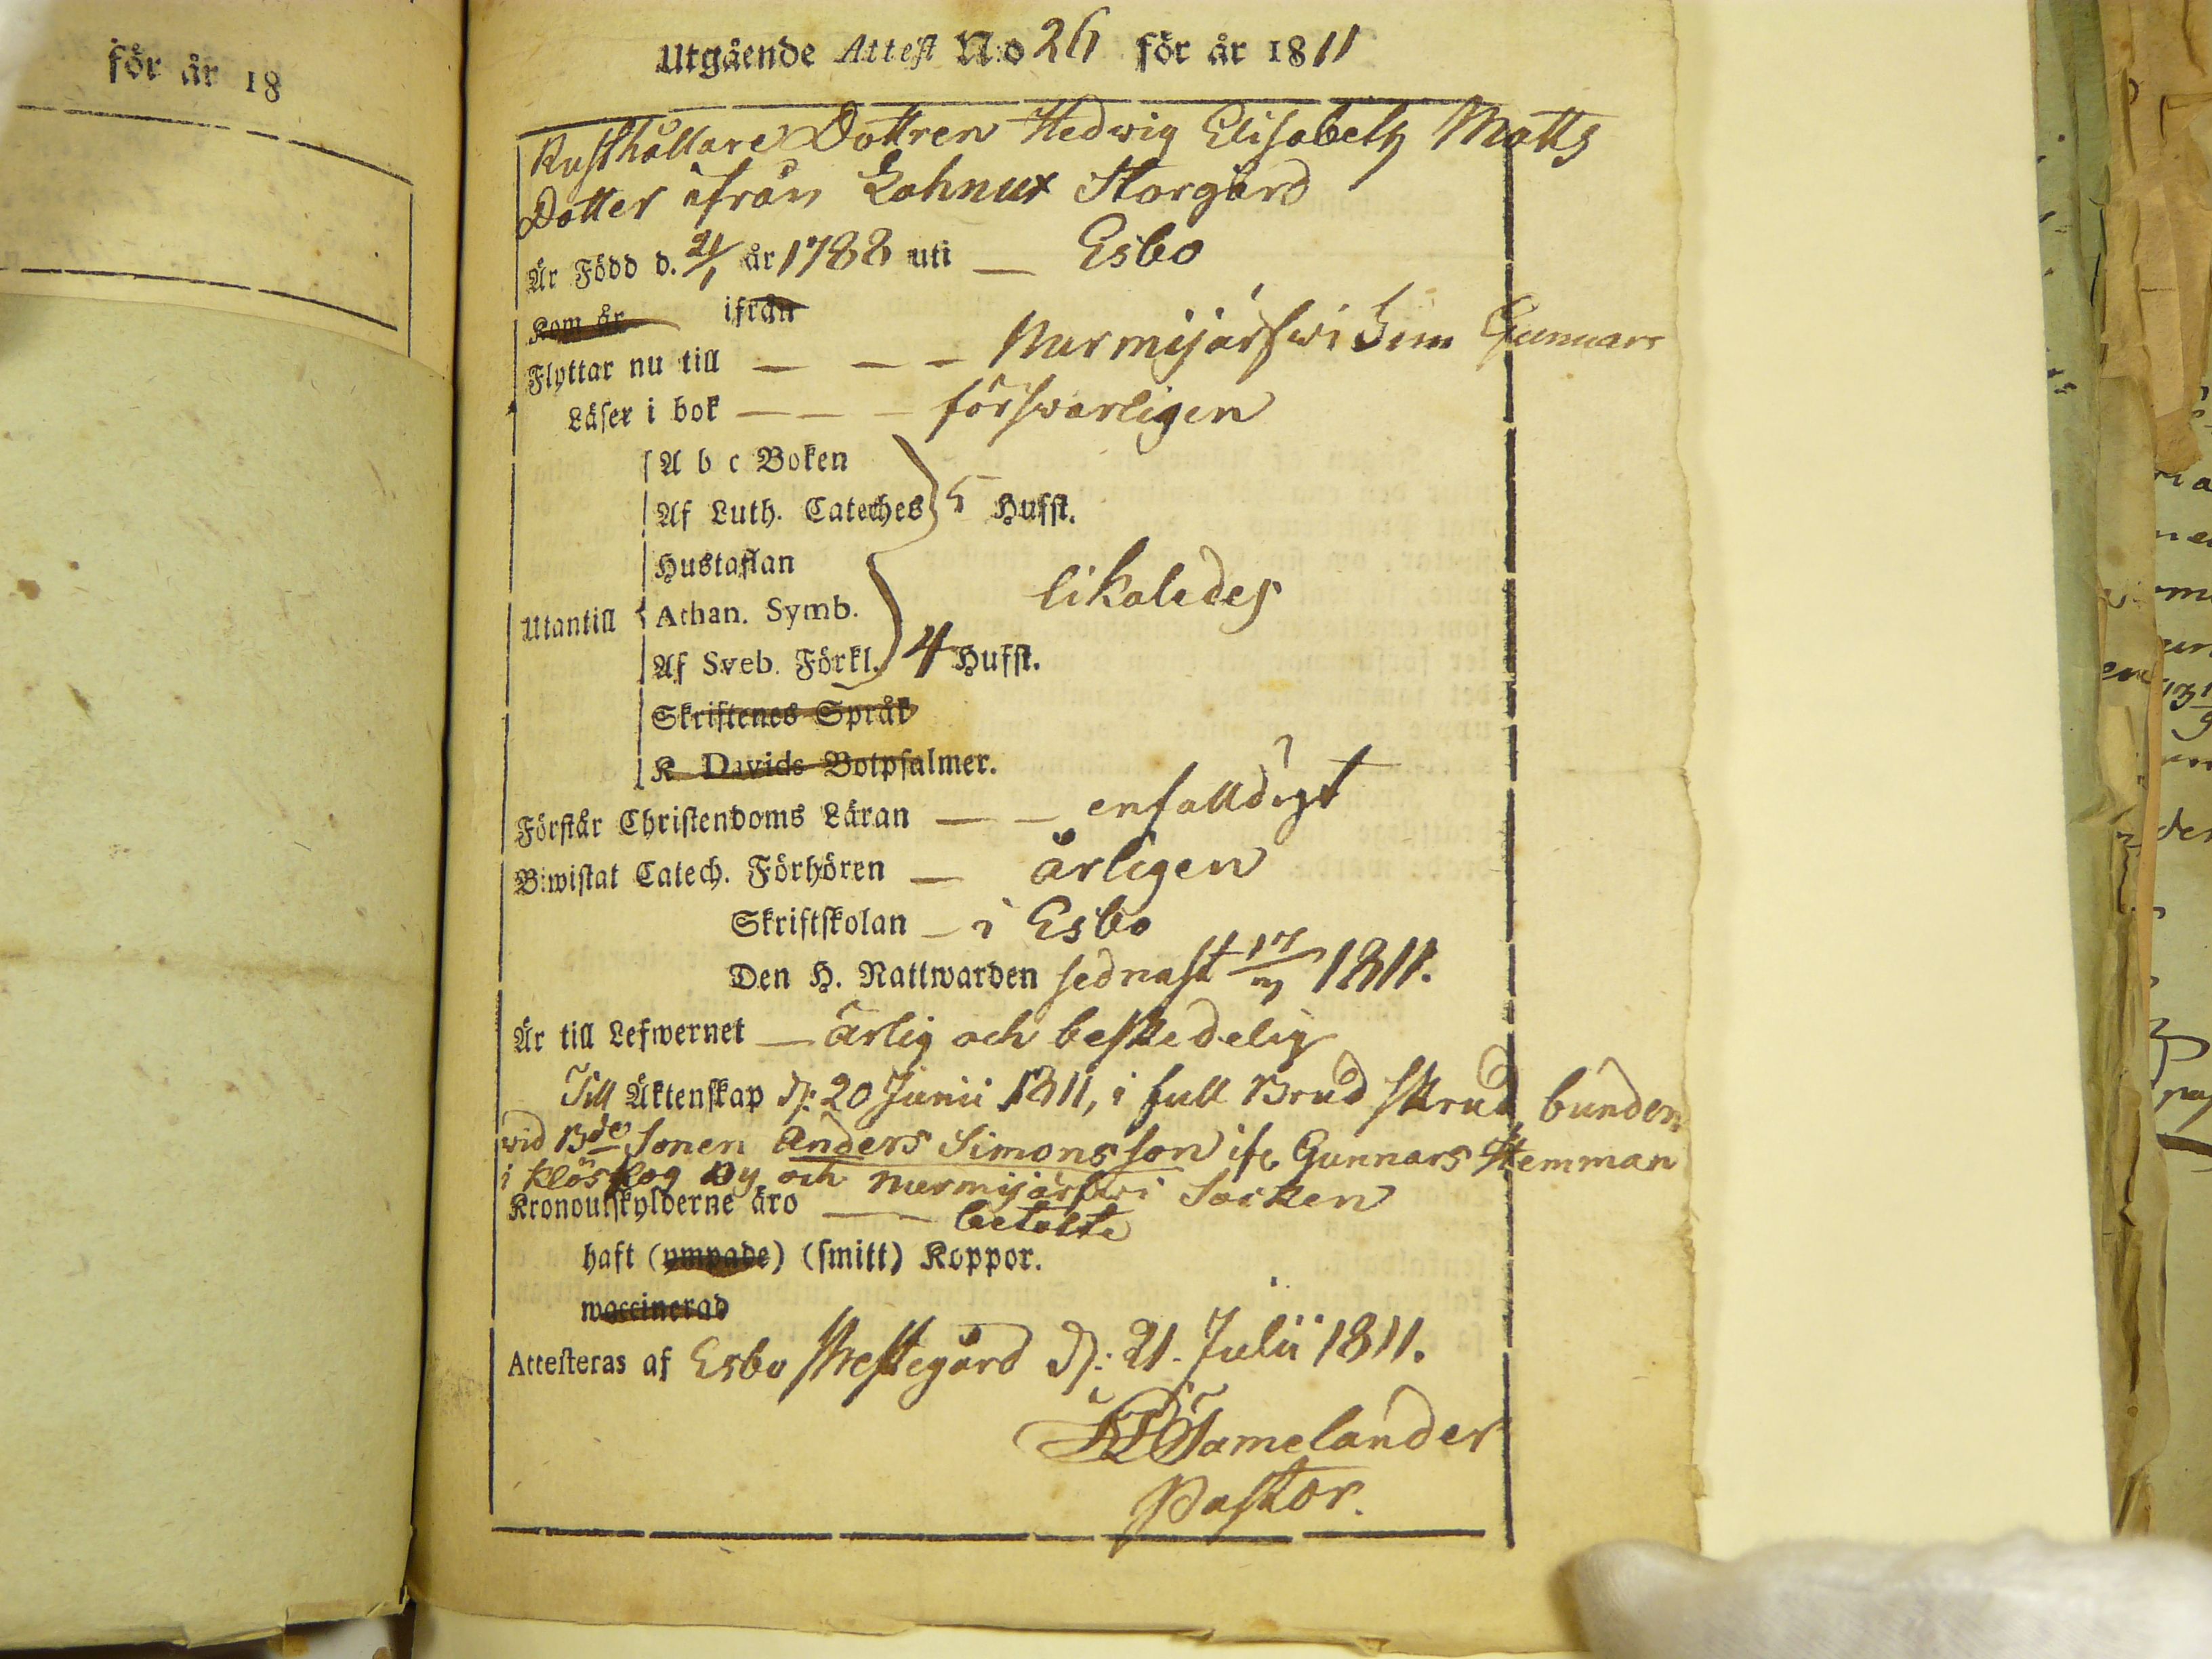 för år 18
Utgående Attest N:o 26 för år 1811
Rusthållare Dottren Hedwig Elisabeth Matts
Dotter ifrån Lahnux Storgård
Är Född d. 21/1 år 1788 uti — Esbo
Kom år ifrån
Flyttar nu till — — — Nurmijärfwi Gunnars
Läser i bok — — — förswarligen
A b c Boken
Af Luth. Cateches 5 Hufst.
Hustaflan
likaledes
Utantill Athan. Symb.
Af Sveb. Förkl. 4 Hufst.
Skriftenes Språk
K Davids Botpsalmer.
Förstår Christendoms Läran — — enfalldigt
Biwistat Catech. Förhören — årligen
Skriftskolan — i Esbo
Den H. Nattwarden sednast 17/ 1811.
Är till Lefwernet — ärlig och beskedelig
Till Äktenskap d: 20 Junii 1811, i full Brud skrud, bunden
wid Bde Sonen Anders Simonsson ifr Gunnars Hemman
i Klöskog By och Nurmijärfwi Socken
Kronoutskylderne äro — betalte
haft (ympade) (smitt) Koppor.
waccinerad
Attesteras af Esbo Prestegård d: 21. Julii 1811.
Tamelander
Pastor.